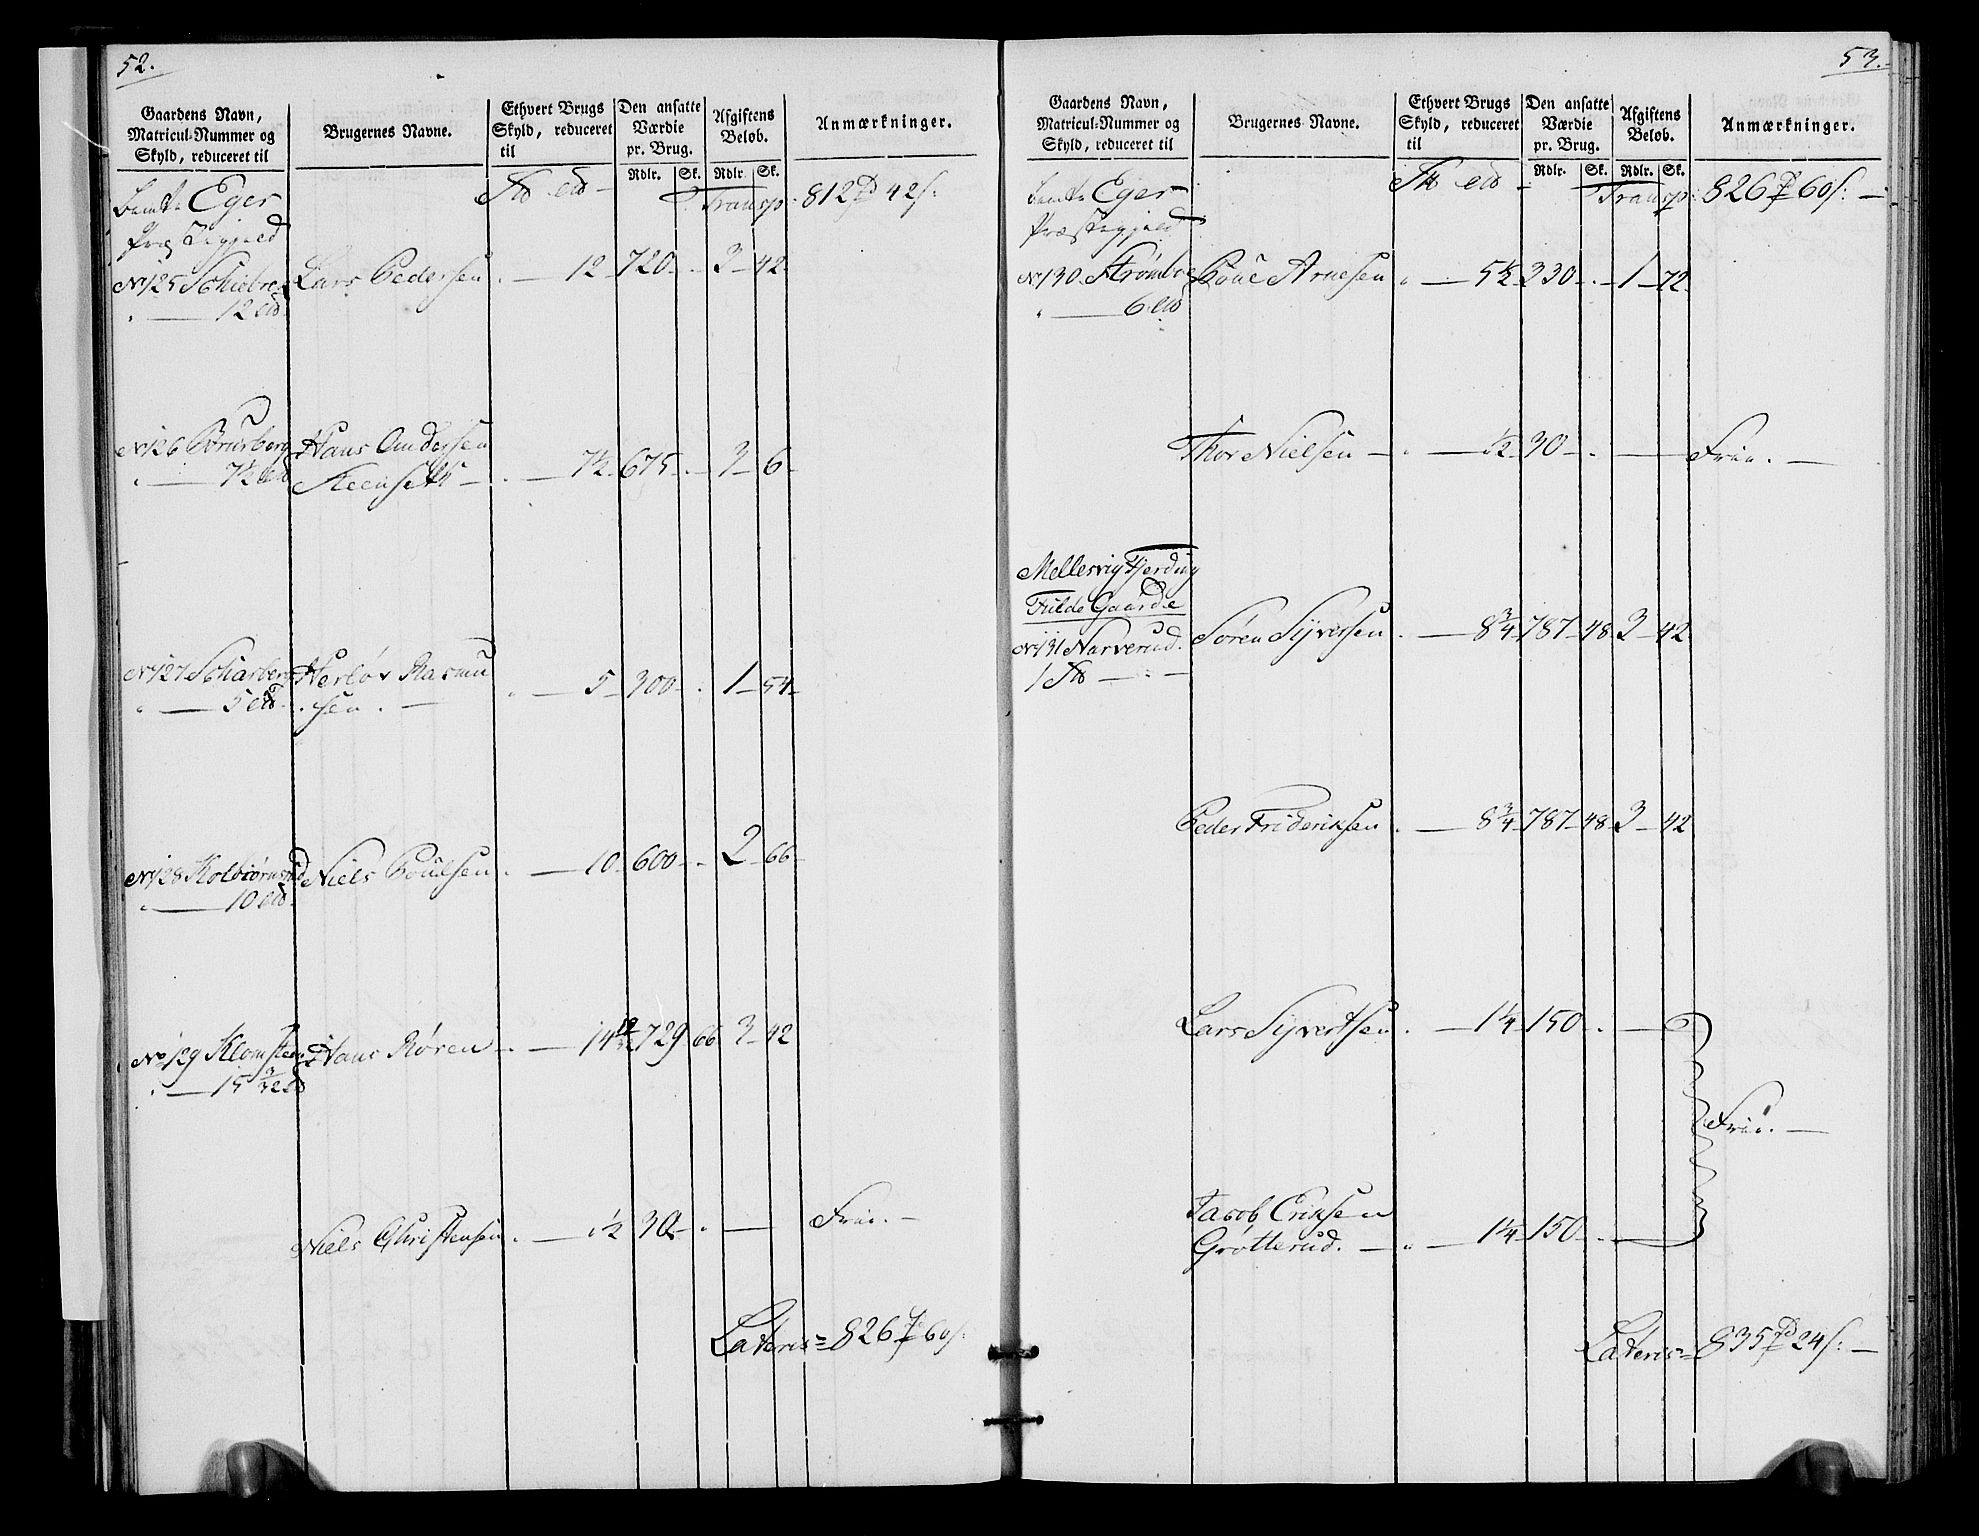 52.
Gaardens Navn,
Matricul-Nummer og
Skyld, reduceret til
Brugernes Navne.
Ethvert Brugs
Skyld, reduceret
til
Den ansatte
Værdie
pr. Brug.
Afgiftens
Beløb.
Anmærkninger.
Rdlr. Sk. Rdlr. Sk.
Eger
Præstegjeld
Transp: 812 42 s:
No 125 Lars Pedersen 12 720 - 3 42
12
No 126 Hans Andersen
7½ 7½ 675 - 3 6
No 127 Rasmu
5 sen 5 300 - 1 54
No 128 Niels Poulsen 10 600 - 2 66
10
No 129 Hans Røren 14 729 66 3 42
15 3/32
Niels Christensen ½ 30 - Frie.
Lateris = 826 60 s:
53.
Gaardens Navn,
Matricul-Nummer og
Skyld, reduceret til
Brugernes Navne.
Ethvert Brugs
Skyld, reduceret
til
Den ansatte
Værdie
pr. Brug.
Afgiftens
Beløb.
Anmærkninger.
Rdlr. Sk. Rdlr. Sk.
Eger
Præstegjeld
Transp: 826 60 s:
No 130 Poul Arnesen 5½ 330 - 1 72
6
Thor Nielsen ½ 30 - Frie.
Mellesvig Fjerding
Fulde Gaarde
No 131 Narverud. Søren Syversen 8¾ 787 48 3 42
1
Peder Frideriksen 8¾ 787 48 3 42
Lars Syvertsen 1¼ 150
Frie.
Jacob Eriksen
Grøtterud. 1¼ 150
Lateris = 835 24 s: